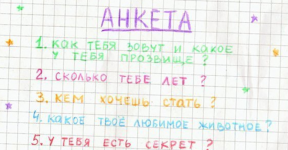 АНКЕТА
1. КАК ТЕБЯ ЗОВУТ И КАКОЕ
У ТЕБЯ ПРОЗВИЩЕ ?
2. СКОЛЬКО ТЕБЕ ЛЕТ ?
3. КЕМ ХОЧЕШЬ СТАТЬ ?
4. КАКОЕ ТВОЁ ЛЮБИМОЕ ЖИВОТНОЕ ?
5. У ТЕБЯ ЕСТЬ СЕКРЕТ ?